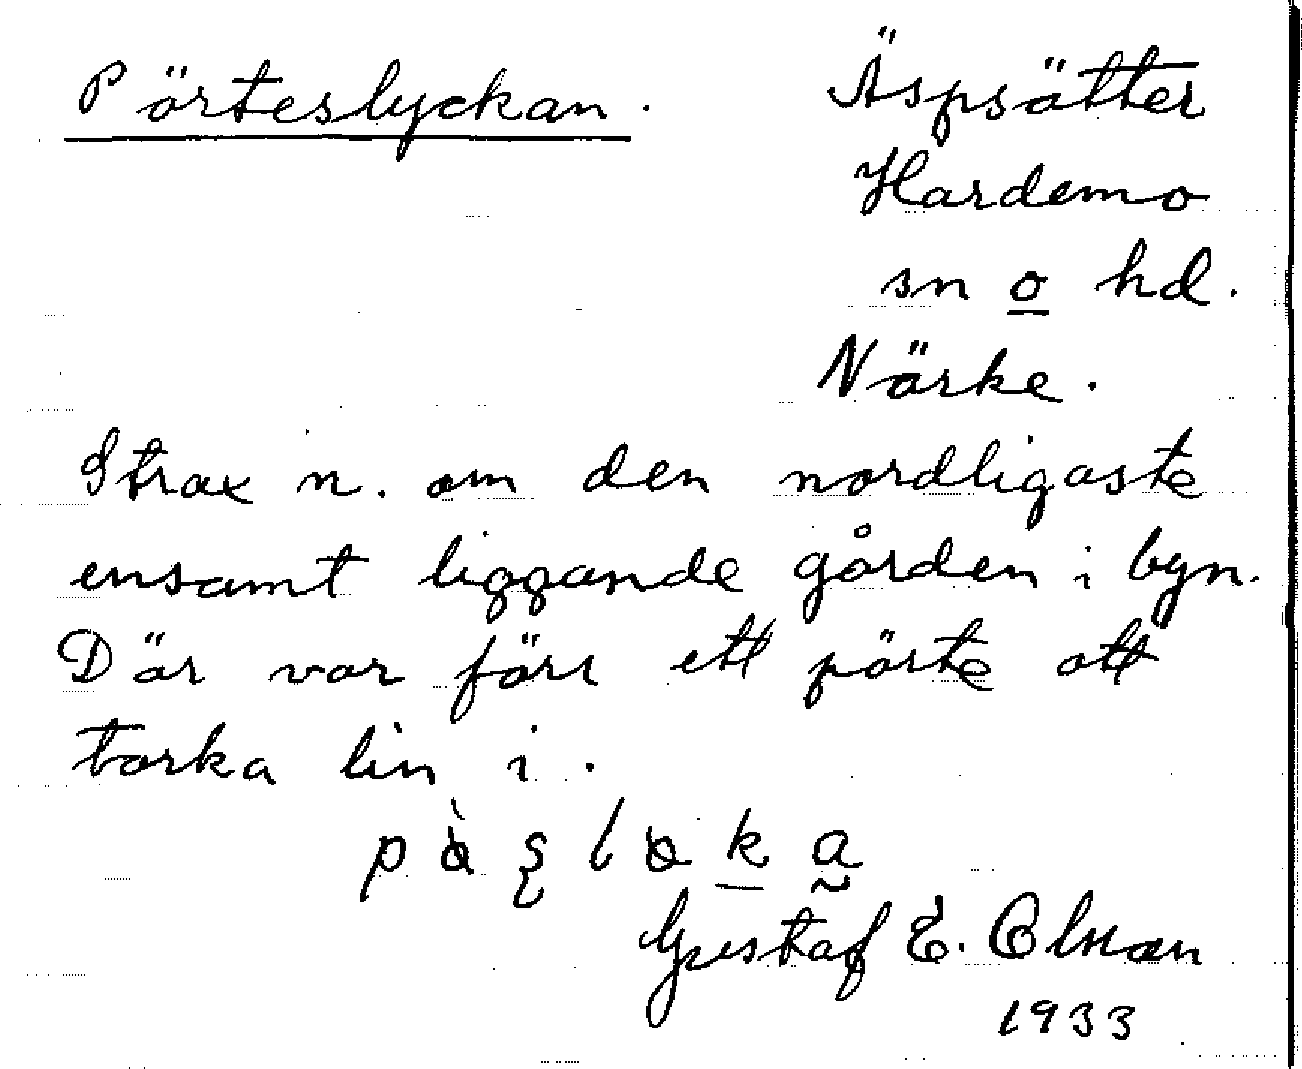 Pörteslyckan.
Äspsätter
Hardemo
sn o hd.
Närke.
Strax n. om den nordligaste
ensamt liggande gården i byn.
Där var förr ett pörte att
torka lin i.
Gustaf E. Olsson
1933